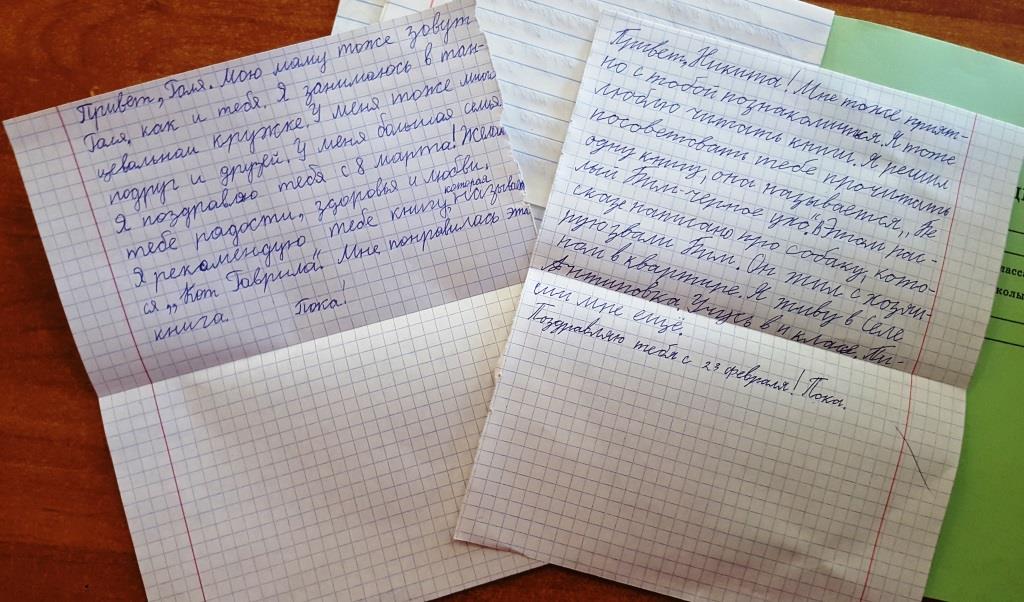 Привет, Галя. Мою маму тоже зовут
Галя, как и тебя. Я занимаюсь в тан-
цевальном кружке. У меня тоже много
подруг и друзей. У меня большая семья.
Я поздравляю тебя с 8 марта! Желаю
тебе радости, здоровья и любви.
которая
Я рекомендую тебе книгу, называет
ся „Кот Гаврила". Мне понравилась эта
книга.
Пока!
Привет, Никита! Мне тоже прият-
но с тобой познакомится. Я тоже
люблю читать книги. Я решил
посоветовать тебе прочитать
одну книгу, она называется „Бе
лый Бим-чёрное ухо". В этом рас-
сказе написано про собаку, кото-
рую звали Бим. Он жил с хозяи-
ном в квартире. Я живу в селе
Учусь в 4 класе. Пи-
ши мне ещё.
Поздравляю тебя с 23 февраля! Пока.